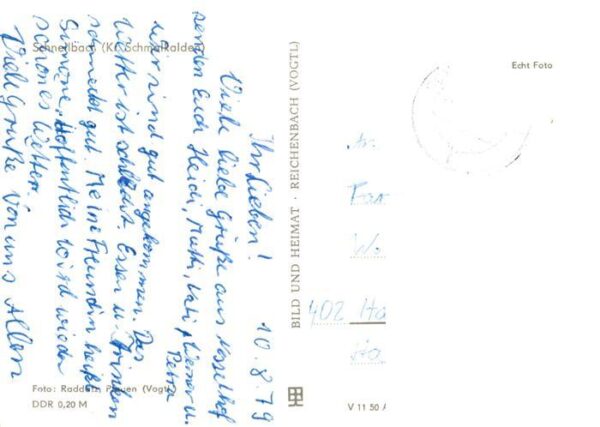 Schnellbach (Kr. Schmalkalden)
10.8.79
Ihr Lieben!
Viele liebe Grüße aus Nesselhof
senden Euch Heidi, Mutti, Vati, Werner u.
Petra
Wir sind gut angekommen. Das
Wetter ist schlecht. Essen u. Trinken
schmeckt gut. Meine Freundin heißt
Simone. Hoffentlich wird wieder
schönes Wetter.
Viele Grüße von uns Allen
Foto: Raddatz, Plauen (Vogtl.)
DDR 0,20 M
BILD UND HEIMAT · REICHENBACH (VOGTL)
Echt Foto
Fam
402 Ha
V 11 50 A